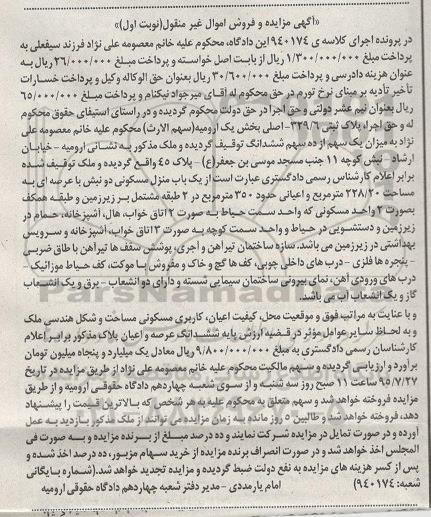 «آگهی مزایده و فروش اموال غیر منقول(نوبت اول)»
در پرونده اجرای کلاسه ی ۹۴۰۱۷۴ این دادگاه، محکوم علیه خانم معصومه علی نژاد فرزند سیفعلی به
پرداخت مبلغ ۱/۳۰۰/۰۰۰/۰۰۰ ریال از بابت اصل خواسته و پرداخت مبلغ ۲۶/۰۰۰/۰۰۰ ریال به
عنوان هزینه دادرسی و پرداخت مبلغ ۳۰/۶۰۰/۰۰۰ ریال بعنوان حق الوکاله وکیل و پرداخت خسارات
تأخیر تادیه بر مبنای نرخ تورم در حق محکوم له آقای میرجواد نیکنام و پرداخت مبلغ ۶۵/۰۰۰/۰۰۰
ریال بعنوان نیم عشر دولتی و حق اجرا در حق دولت محکوم گردیده و در راستای استیفای حقوق محکوم
له و حق اجرا، پلاک ثبتی ۳۲۹/۶- اصلی بخش یک ارومیه(سهم الارث) محکوم علیه خانم معصومه علی
نژاد به میزان یک سهم از ده سهم ششدانگ توقیف گردیده و ملک مذکور به نشانی ارومیه - خیابان
ارشاد - نبش کوچه ۱۱ جنب مسجد موسی بن جعفر(ع) - پلاک ۴۵ واقع گردیده و ملک توقیف شده
برابر اعلام کارشناس رسمی دادگستری عبارت است از یک باب منزل مسکونی دو نبش با عرصه ای به
مساحت ۲۲۸/۲۰ مترمربع و اعیانی حدود ۳۵۰ مترمربع در ۲ طبقه مشتمل بر زیرزمین و طبقه همکف
بصورت ۲ واحد مسکونی که واحد سمت حیاط به صورت ۲ اتاق خواب، هال، آشپزخانه، حمام در
زیرزمین و دستشویی در حیاط و واحد سمت کوچه به صورت ۳ اتاق خواب، آشپزخانه و سرویس
بهداشتی در زیرزمین می باشد. سازه ساختمان تیرآهن و آجری، پوشش سقف ها تیرآهن با طاق ضربی
- پنجره ها فلزی - درب های داخلی چوبی، کف ها گچ و خاک و مفروش با موکت، کف حیاط موزائیک -
درب های ورودی آهن، نمای بیرونی ساختمان سیمانی شسته و دارای دو انشعاب - برق و یک انشعاب
گاز و یک انشعاب آب می باشد.
و با عنایت به مراتب فوق و موقعیت محل، کیفیت اعیان، کاربری مسکونی مساحت و شکل هندسی ملک
و به لحاظ سایر عوامل مؤثر در قضیه ارزش پایه ششدانگ عرصه و اعیان پلاک مذکور برابر اعلام
کارشناسان رسمی دادگستری به مبلغ ۹/۸۰۰/۰۰۰/۰۰۰ ریال معادل یک میلیارد و پنجاه میلیون تومان
برآورد و ارزیابی گردیده و سهم مالکیت محکوم علیه خانم معصومه علی نژاد از طریق مزایده در تاریخ
۹۵/۷/۲۷ ساعت ۱۱ صبح روز سه شنبه و از سوی شعبه چهاردهم دادگاه حقوقی ارومیه و از طریق
مزایده فروخته خواهد شد و سهم متعلق به محکوم علیه به هر شخص که بالاترین قیمت را پیشنهاد
دهد، فروخته خواهد شد و طالبین ۵ روز مانده به زمان مزایده می توانند از ملک مذکور بازدید به عمل
آورده و در صورت تمایل در مزایده شرکت نمایند و ده درصد مبلغ از برنده مزایده و به صورت فی
المجلس اخذ خواهد شد و در صورت انصراف برنده مزایده از خرید سهام مزبور، ده درصد اخذ شده و
پس از کسر هزینه های مزایده به نفع دولت ضبط گردیده و مزایده تجدید خواهد شد.(شماره بایگانی
شعبه: ۹۴۰۱۷۴) امام یارمددی - مدیر دفتر شعبه چهاردهم دادگاه حقوقی ارومیه